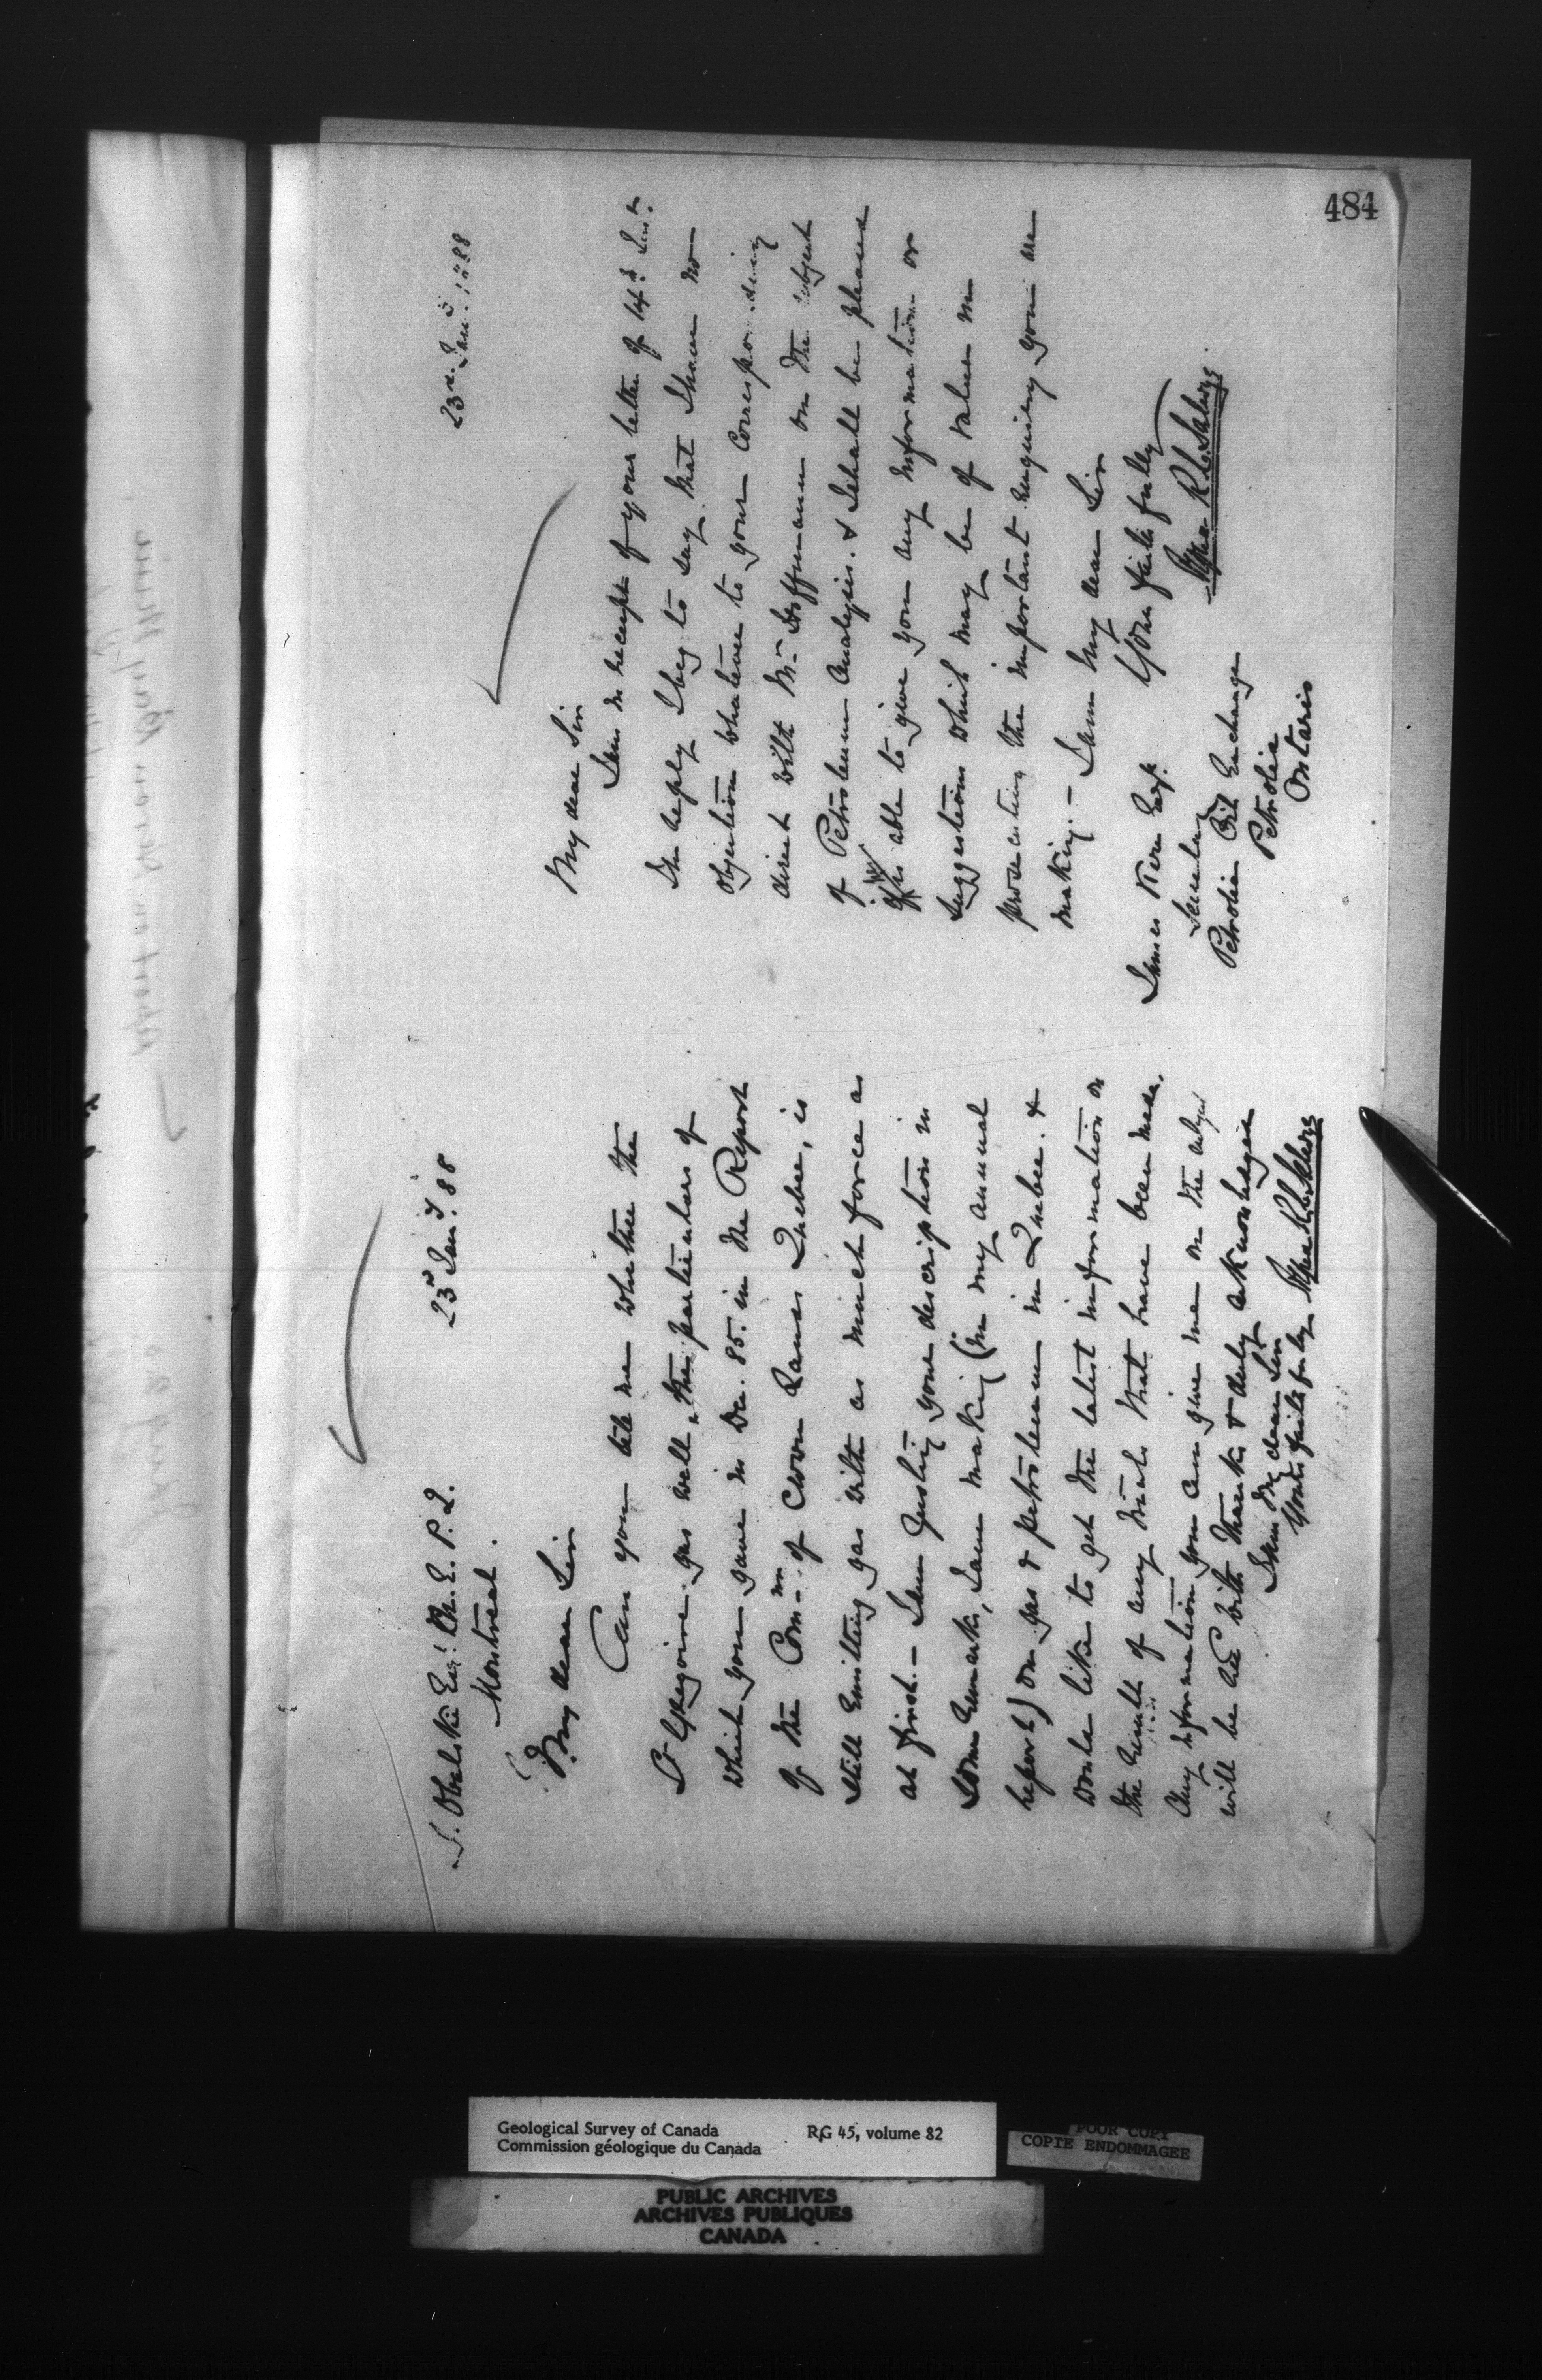 484
J. Obalski Esqr. M.E. P.Q.
Montreal.
23d Jany. 88
My dear Sir
Can you tell me whether the
St Gregoire gas well, the particulars of
which you gave in Dec. 85. in the Report
of the Comnr. of Crown Lands Quebec, is
still emitting gas with as much force as
at first. — I am Quoting your description in
some remarks, I am making (in my annual
report) on gas & petroleum in Quebec. &
would like to get the latest information on
the result of any trials that have been made.
Any information you can give me on the subject
will be recd with thanks & duly acknowledged
I am My dear Sir
Yours faithfully
Alfred R. C. Selwyn
23d. Jany. 1888
My dear Sir
I am in receipt of your letter of 14th Inst.
In reply I beg to say that I have no
objection whatever to your corresponding
direct with Mr. Hoffmann on the subject
of Petroleum Analysis. & I shall be pleased
if able to give you any information or
suggestions which may be of value in
prosecuting the important enquiry you are
making. — I am My dear Sir
Yours faithfully
Alfred R. C. Selwyn
James Kerr Esq.
Secretary
Petrolia Oil Exchange
Petrolia
Ontario
Geological Survey of Canada
Commission géologique du Canada
RG 45, volume 82
POOR COPY
COPIE ENDOMMAGEE
PUBLIC ARCHIVES
ARCHIVES PUBLIQUES
CANADA